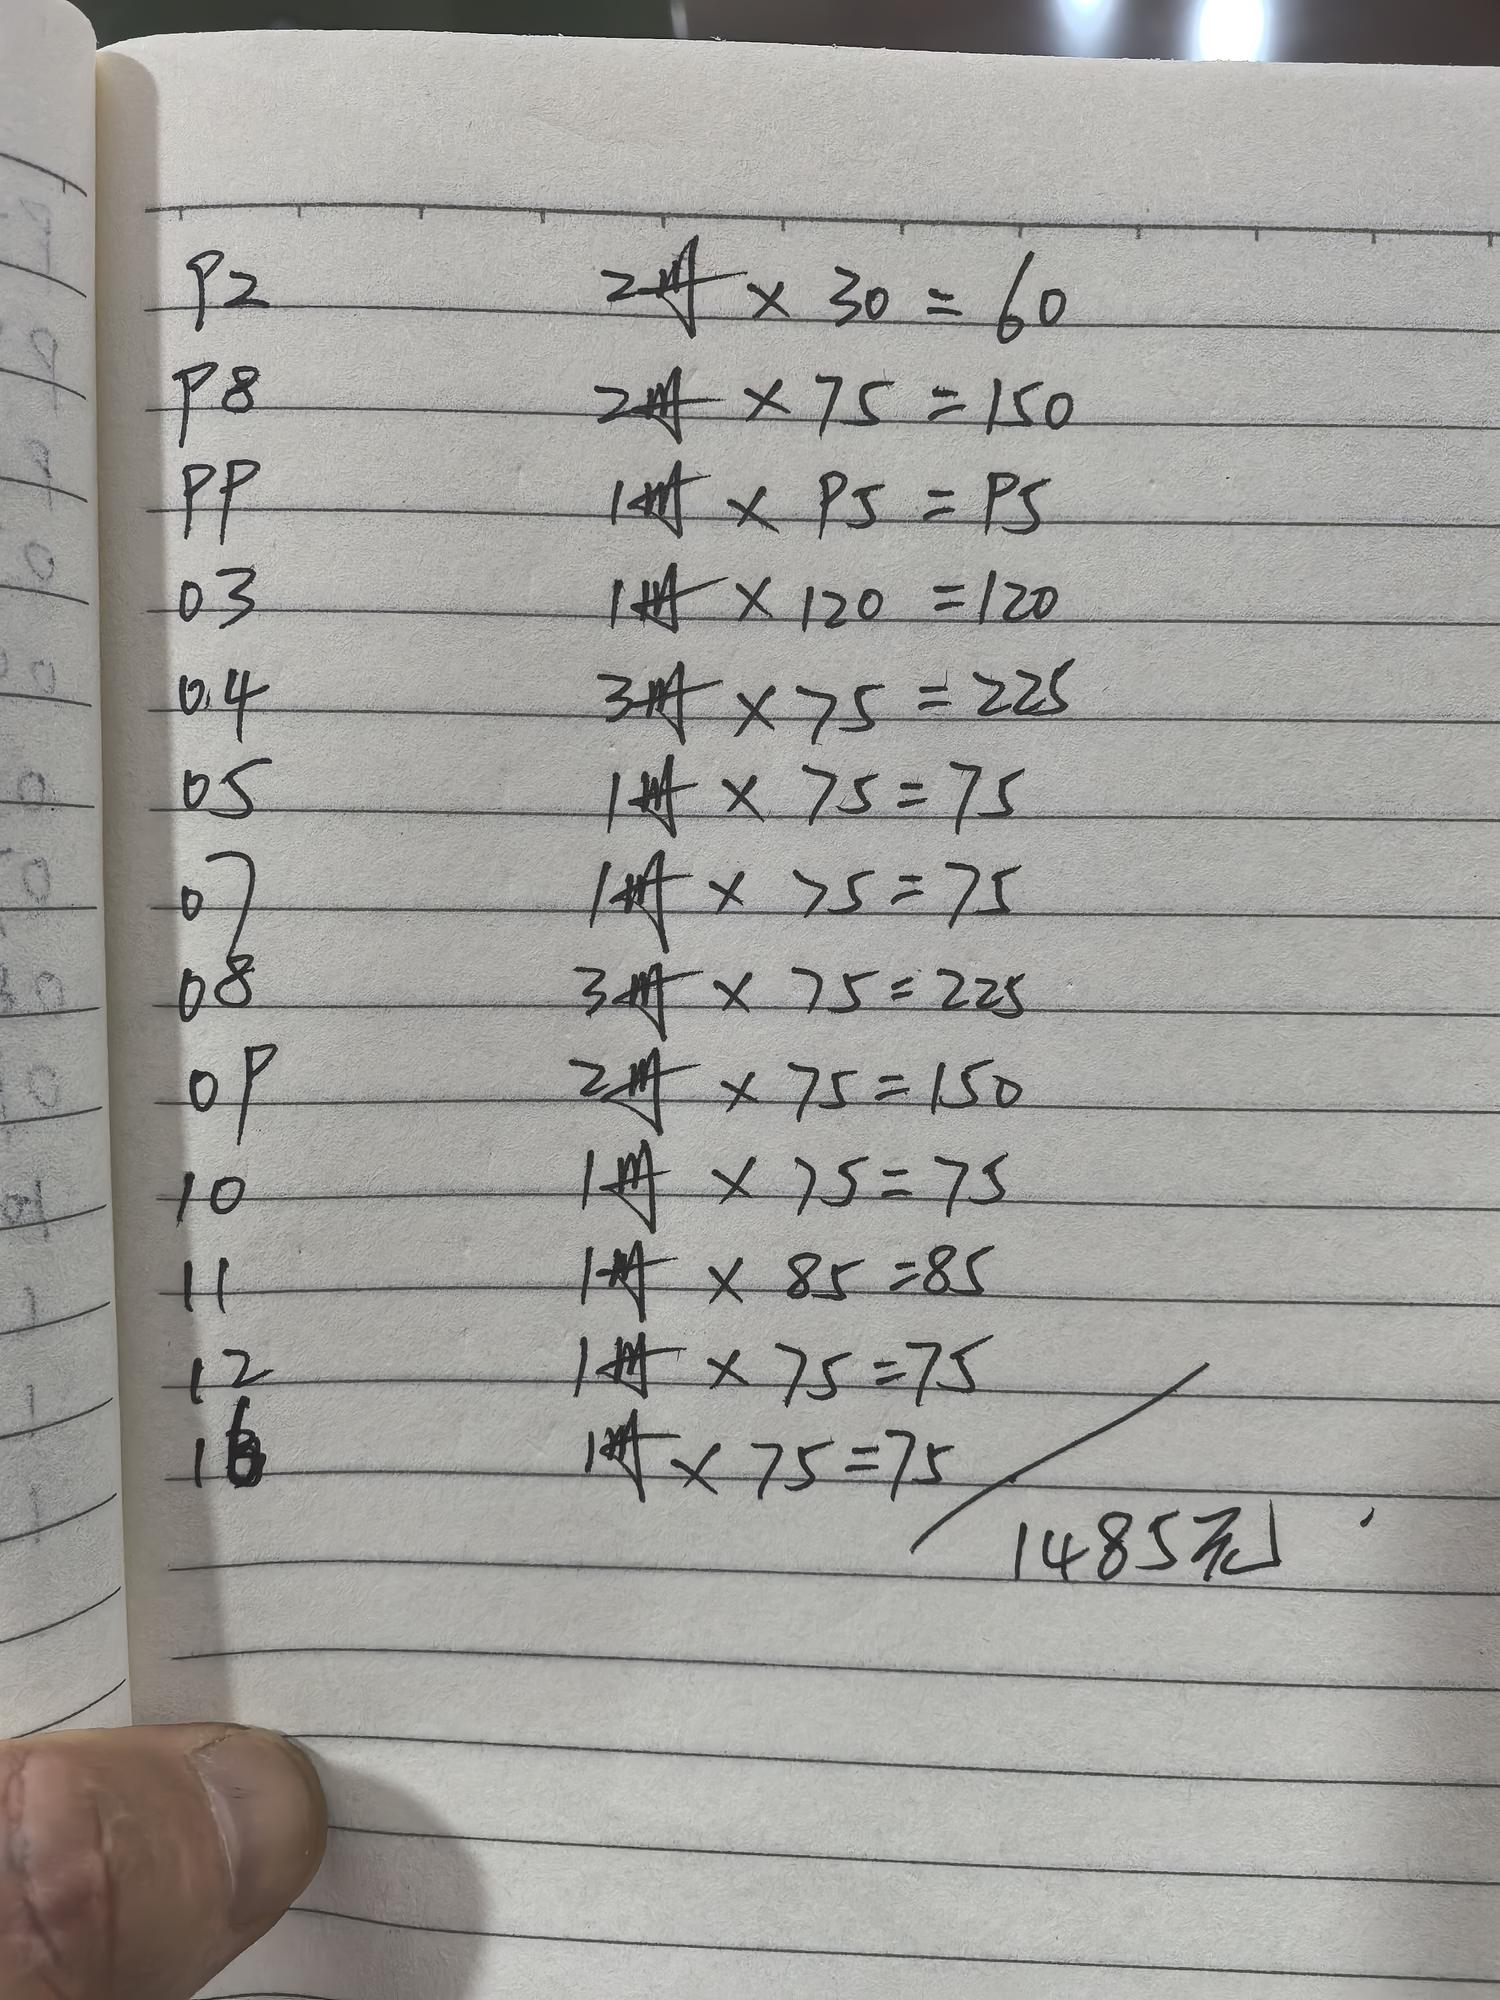 92 2册 × 30 = 60
98 2册 × 75 = 150
99 1册 × 95 = 95
03 1册 × 120 = 120
04 3册 × 75 = 225
05 1册 × 75 = 75
07 1册 × 75 = 75
08 3册 × 75 = 225
09 2册 × 75 = 150
10 1册 × 75 = 75
11 1册 × 85 = 85
12 1册 × 75 = 75
16 1册 × 75 = 75
1485元